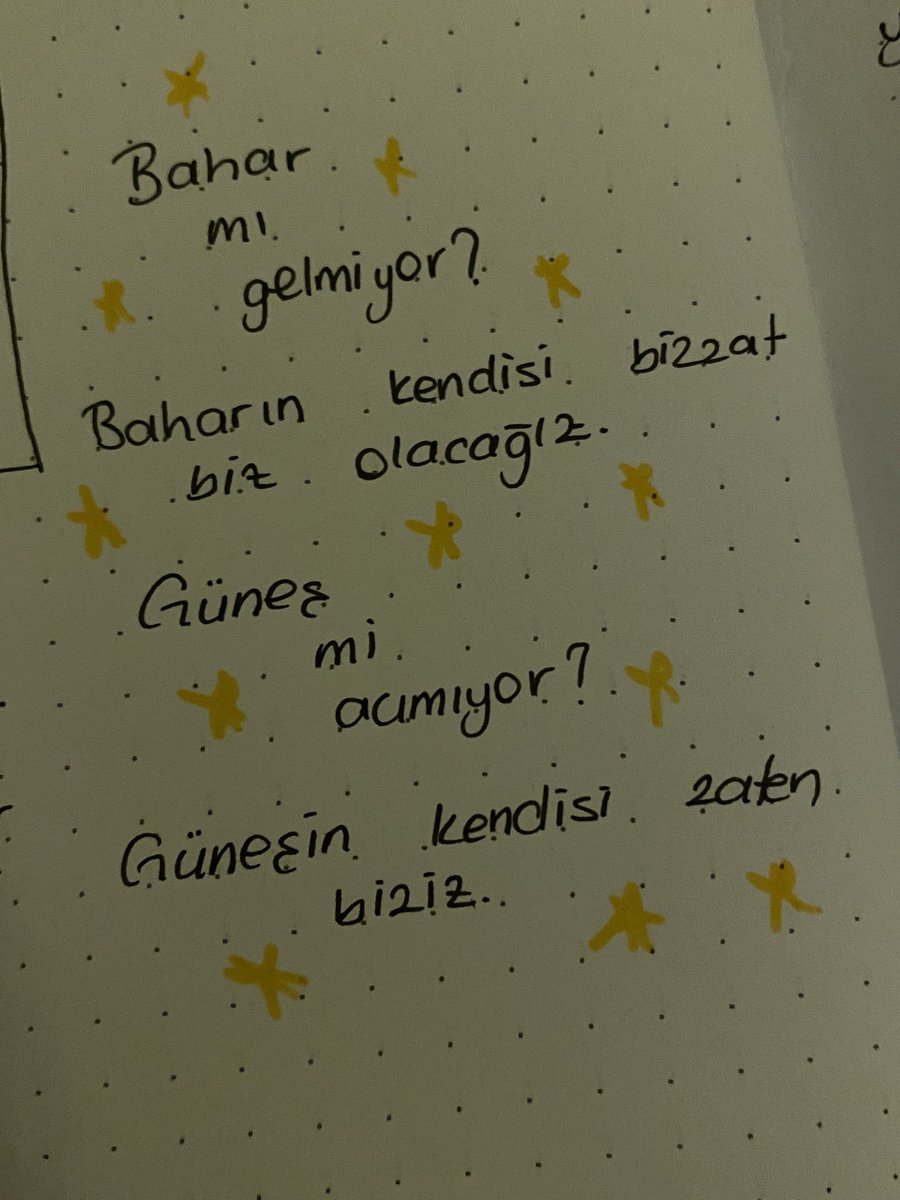 Bahar
mı
gelmiyor?
Baharın kendisi bizzat
biz olacağız.
Güneş
mi
acımıyor?
Güneşin kendisi zaten
biziz.